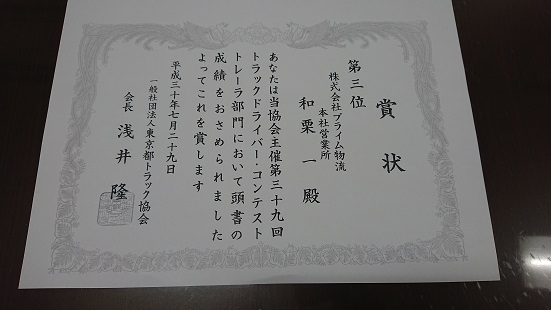 賞状
第三位
株式会社プライム物流
本社営業所
和栗一殿
あなたは当協会主催第三十九回
トラックドライバー・コンテスト
トレーラ部門において頭書の
成績をおさめられました
よってこれを賞します
平成三十年七月二十九日
一般社団法人東京都トラック協会
会長 浅井隆